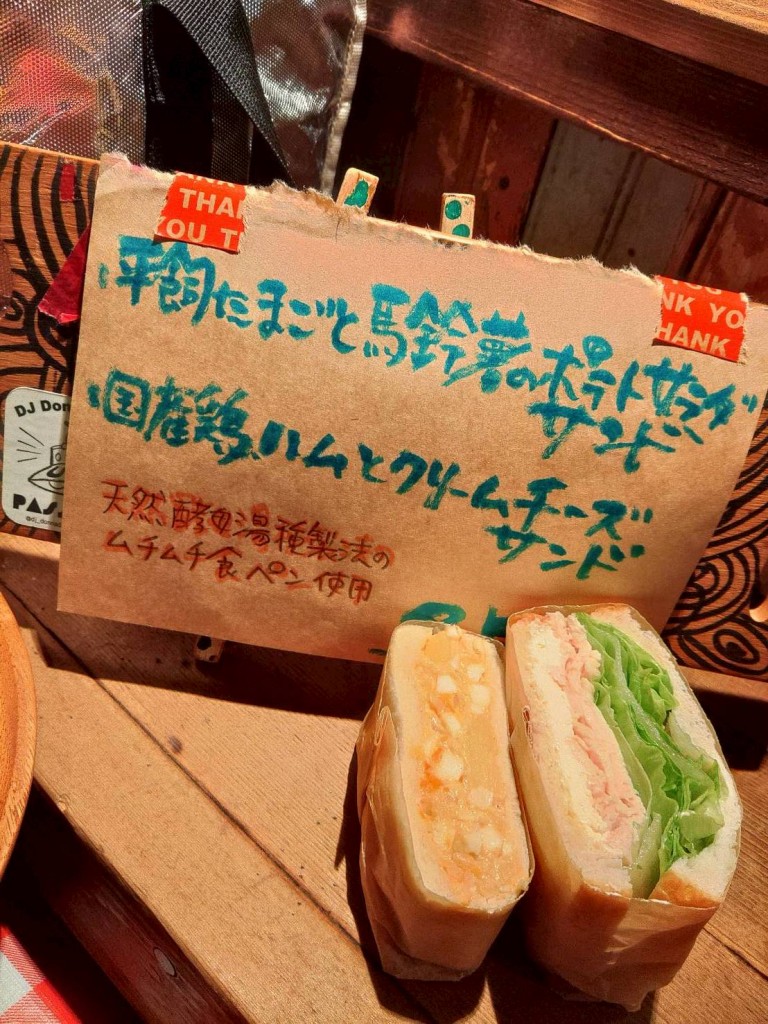 THAN
YOU T
NK YO
THANK
:平飼たまごと馬鈴薯のポテトサラダ
サンド
:国産鶏ハムとクリームチーズ
サンド
天然酵母湯種製法の
ムチムチ食ペン使用
DJ Don
PAS